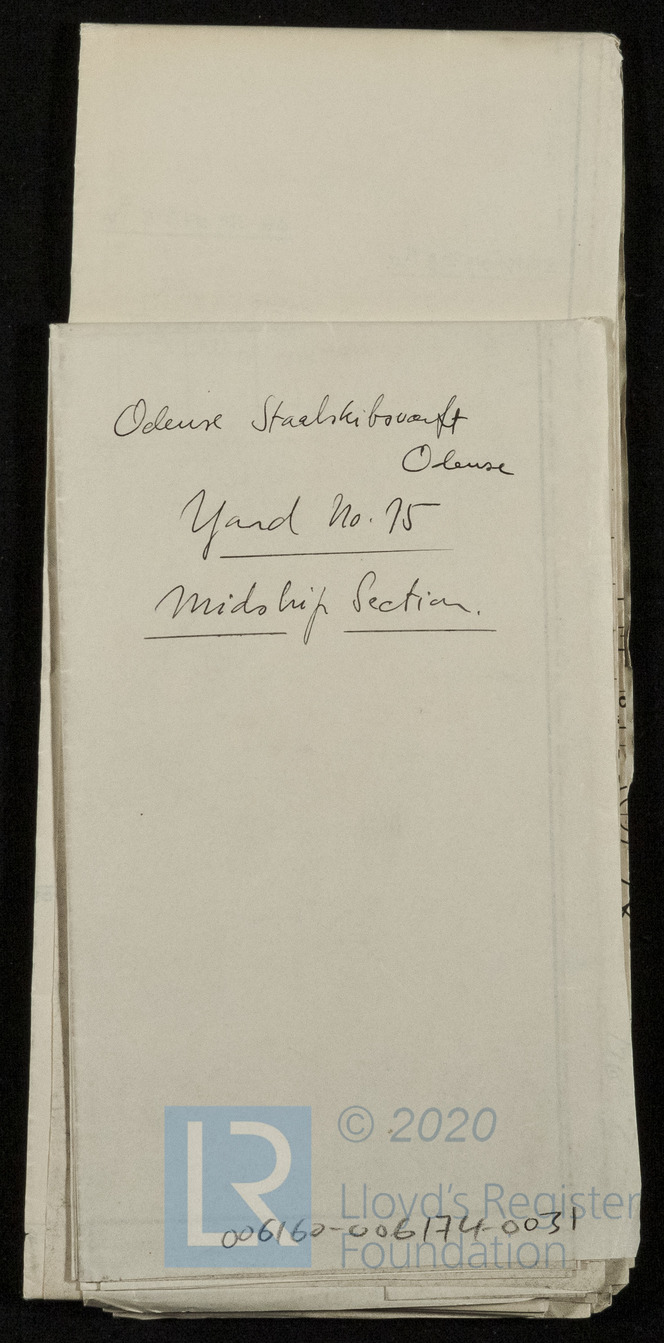 Odense Staalskibsværft
Odense
Yard No. 75
Midship Section.
© 2020
LR
Lloyd's Register
Foundation
006160-006174-0031